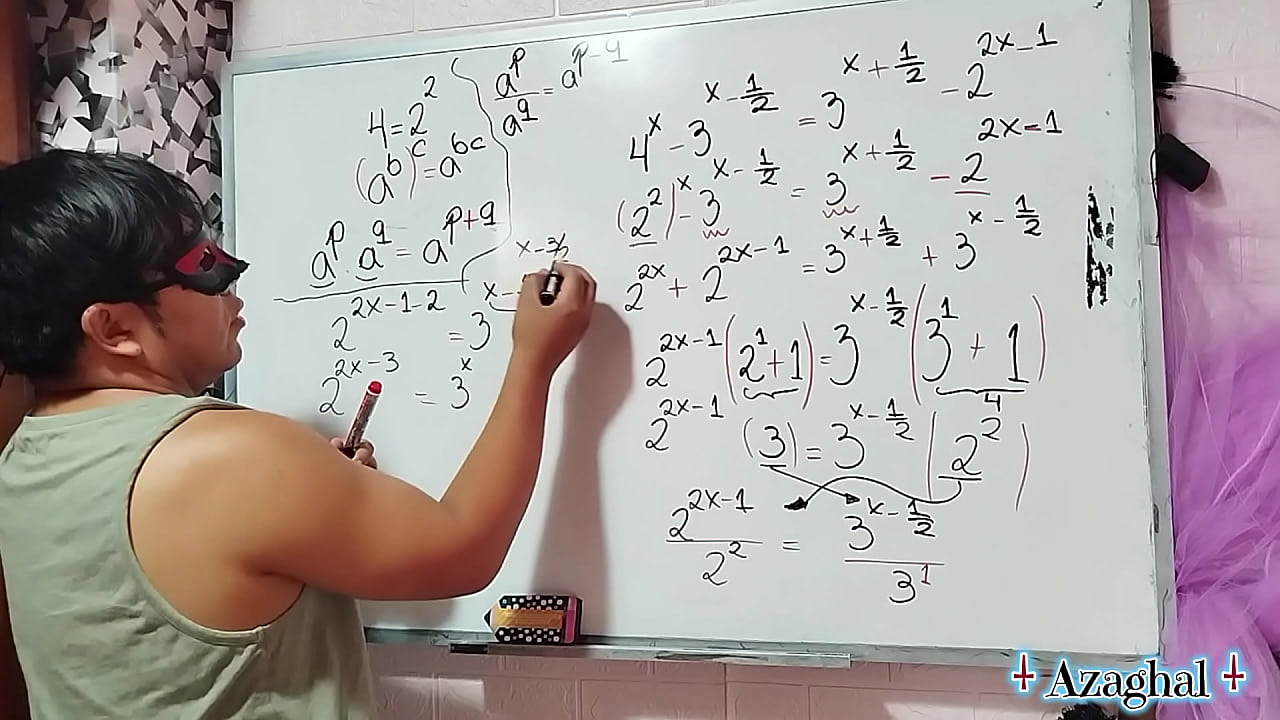 4=2²
(a^b)^c=a^{bc}
a^p · a^q = a^{p+q}
a^p/a^q = a^{p-q}
2^{2x-1-2} = 3^{x-
x-3/2
2^{2x-3} = 3^x
4^x - 3^{x-1/2} = 3^{x+1/2} - 2^{2x-1}
(2²)^x - 3^{x-1/2} = 3^{x+1/2} - 2^{2x-1}
2^{2x} + 2^{2x-1} = 3^{x+1/2} + 3^{x-1/2}
2^{2x-1}(2¹+1) = 3^{x-1/2}(3¹+1)
4
2^{2x-1} (3) = 3^{x-1/2} (2²)
2^{2x-1}/2² = 3^{x-1/2}/3¹
Azaghal